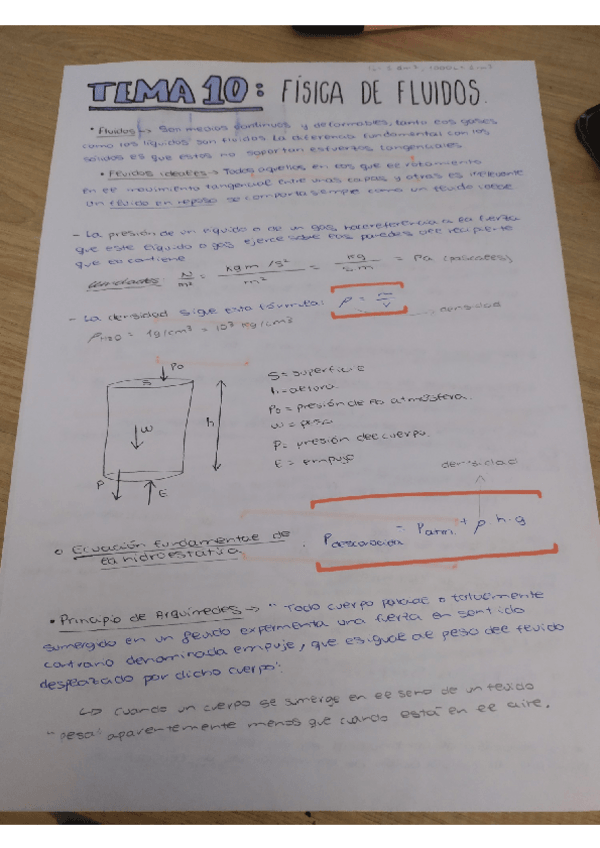 TEMA 10: FÍSICA DE FLUIDOS.
• Fluidos -> Son medios continuos y deformables, tanto los gases
como los líquidos son fluidos. La diferencia fundamental con los
sólidos es que estos no soportan esfuerzos tangenciales.
• Fluidos ideales -> Todos aquellos en los que el rozamiento
en el movimiento tangencial entre unas capas y otras es irrelevante
Un fluido en reposo se comporta siempre como un fluido
- La presión de un líquido o de un gas hace referencia a la fuerza
que este líquido o gas ejerce sobre las paredes del recipiente
que lo contiene
Unidades: N/m² = kg m/s² / m² = kg / s m = Pa (pascales)
- La densidad sigue esta fórmula: ρ = m/v densidad
ρH2O = 1g/cm³ = 10³ kg/cm³
Po
S
W
h
P
E
S = superficie
h = altura
Po = presión de la atmósfera.
W = peso
P = presión del cuerpo.
E = empuje
densidad
• Ecuación fundamental de
la hidrostática
= Patm. + ρ · h · g
• Principio de Arquímedes -> "Todo cuerpo parcial o totalmente
sumergido en un fluido experimenta una fuerza en sentido
contrario denominada empuje, que es igual al peso del fluido
desplazado por dicho cuerpo".
↳ Cuando un cuerpo se sumerge en el seno de un fluido
"pesa" aparentemente menos que cuando está en el aire.